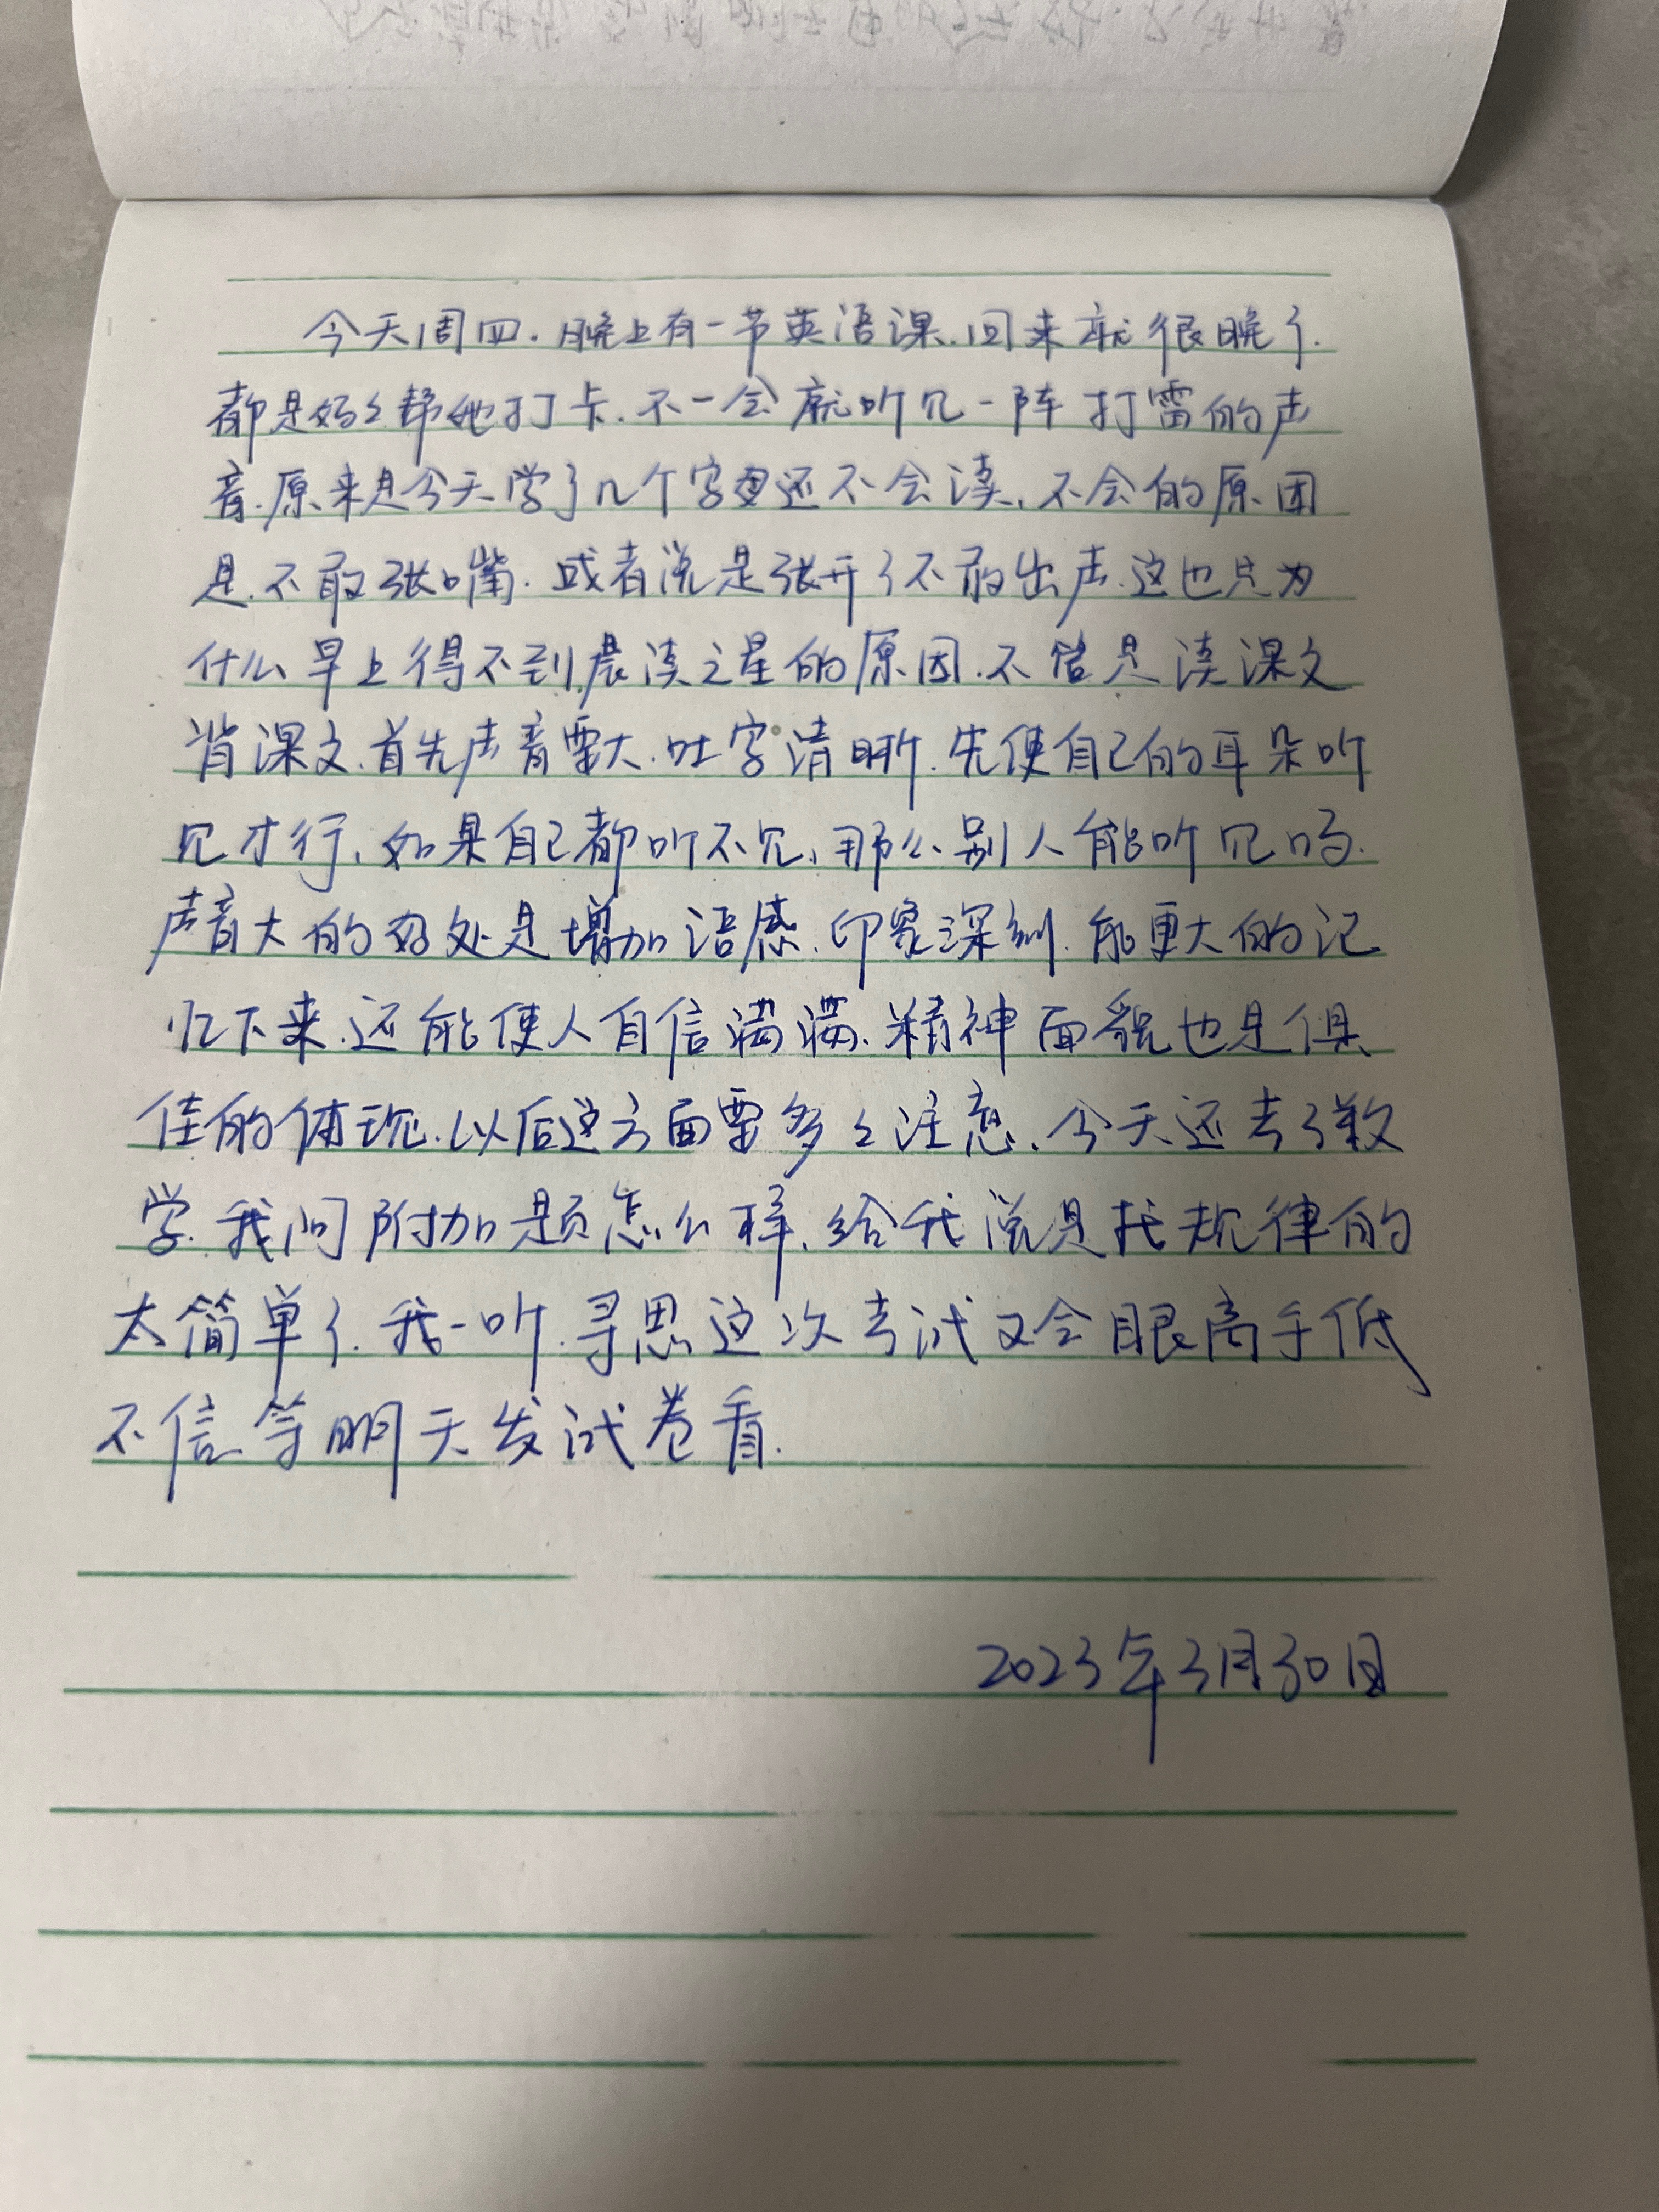 今天周四.晚上有一节英语课.回来就很晚了.
都是妈妈帮她打卡.不一会就听见一阵打雷的声
音.原来是今天学了几个字母还不会读、不会的原因
是.不敢张嘴.或者说是张开了不敢出声.这也是为
什么早上得不到晨读之星的原因.不管是读课文
背课文.首先声音要大.吐字清晰.先使自己的耳朵听
见才行、如果自己都听不见、那么别人能听见吗.
声音大的好处是增加语感.印象深刻.能更大的记
忆下来.还能使人自信满满、精神面貌也是俱
佳的体现.以后这方面要多多注意、今天还考了数
学.我问附加题怎么样、给我说是找规律的
太简单了.我一听.寻思这次考试又会眼高手低
不信等明天发试卷看.
2023年3月30日